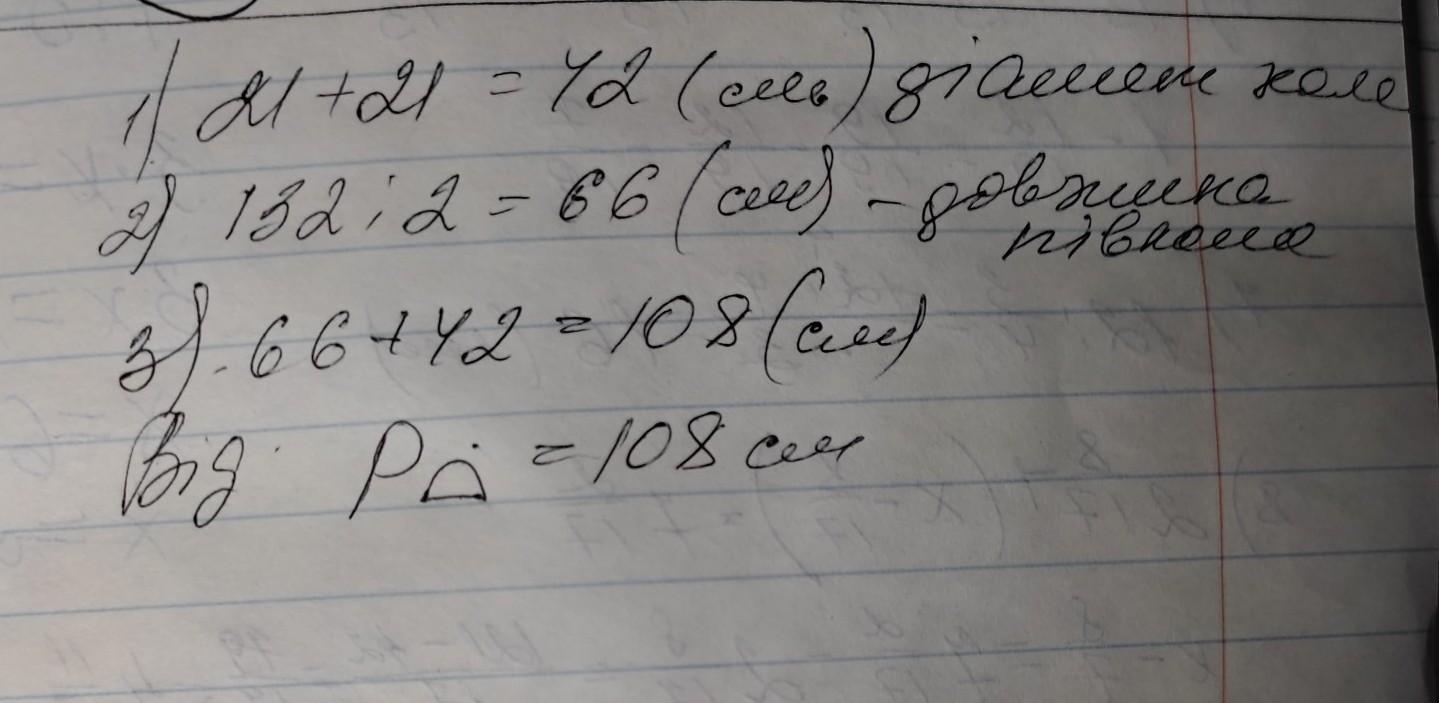 1) 21 + 21 = 42 (см) діамет кола
2) 132 : 2 = 66 (см) - довжина
півкола
3). 66 + 42 = 108 (см)
Від. P⌓ = 108 см